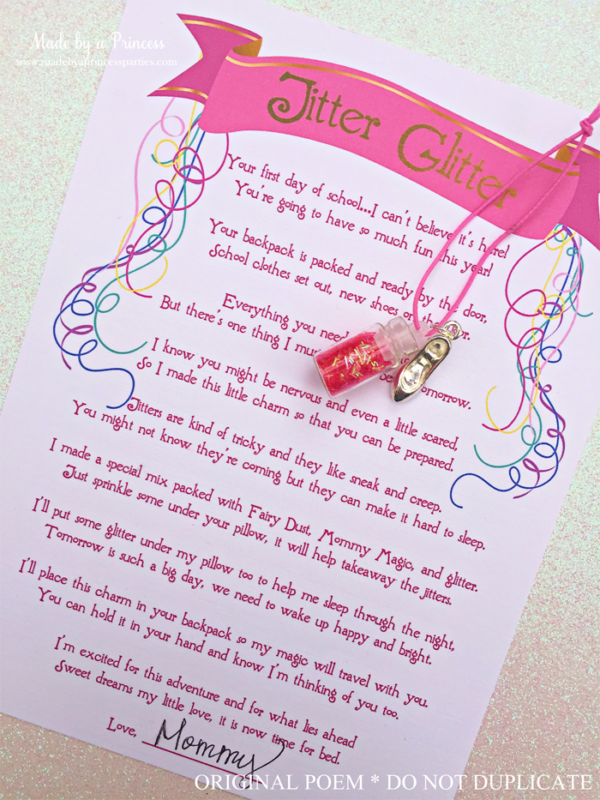 Made by a Princess
www.madebyaprincessparties.com
Jitter Glitter
Your first day of school...I can't believe it's here!
You're going to have so much fun this year!
Your backpack is packed and ready by the door,
School clothes set out, new shoes on
Everything you need
But there's one thing I tomorrow.
I know you might be nervous and even a little scared,
So I made this little charm so that you can be prepared.
Jitters are kind of tricky and they like sneak and creep.
You might not know they're coming but they can make it hard to sleep.
I made a special mix packed with Fairy Dust, Mommy Magic, and glitter.
Just sprinkle some under your pillow, it will help takeaway the jitters.
I'll put some glitter under my pillow too to help me sleep through the night,
Tomorrow is such a big day, we need to wake up happy and bright.
I'll place this charm in your backpack so my magic will travel with you.
You can hold it in your hand and know I'm thinking of you too.
I'm excited for this adventure and for what lies ahead
Sweet dreams my little love, it is now time for bed.
Love, Mommy
ORIGINAL POEM * DO NOT DUPLICATE